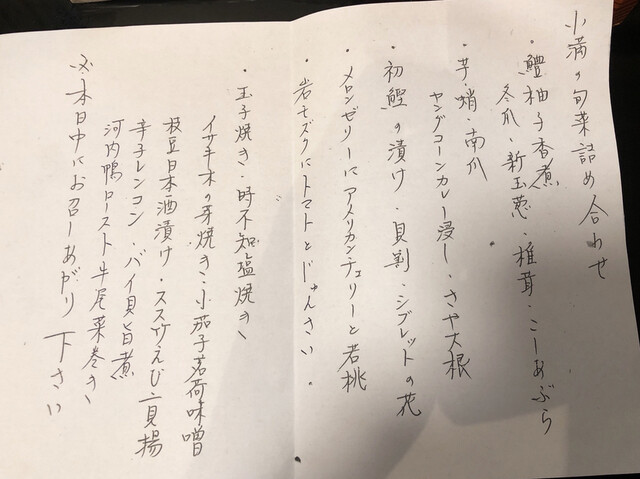 小満の旬菜詰め合わせ
・鱧柚子香煮
冬瓜・新玉葱・椎茸・こしあぶら
・芋・蛸・南瓜
ヤングコーンカレー浸し・さや大根
・初鰹の漬け・貝割・シブレットの花
・メロンゼリーにアメリカンチェリーと若桃
・岩モズクにトマトとじゅんさい・
・玉子焼き・時不知塩焼き
イサキ木の芽焼き・小茄子茗荷味噌
枝豆日本酒漬け・スス竹えび真揚
辛子レンコン・バイ貝旨煮
河内鴨ロースト牛尾菜巻き
※本日中にお召しあがり下さい